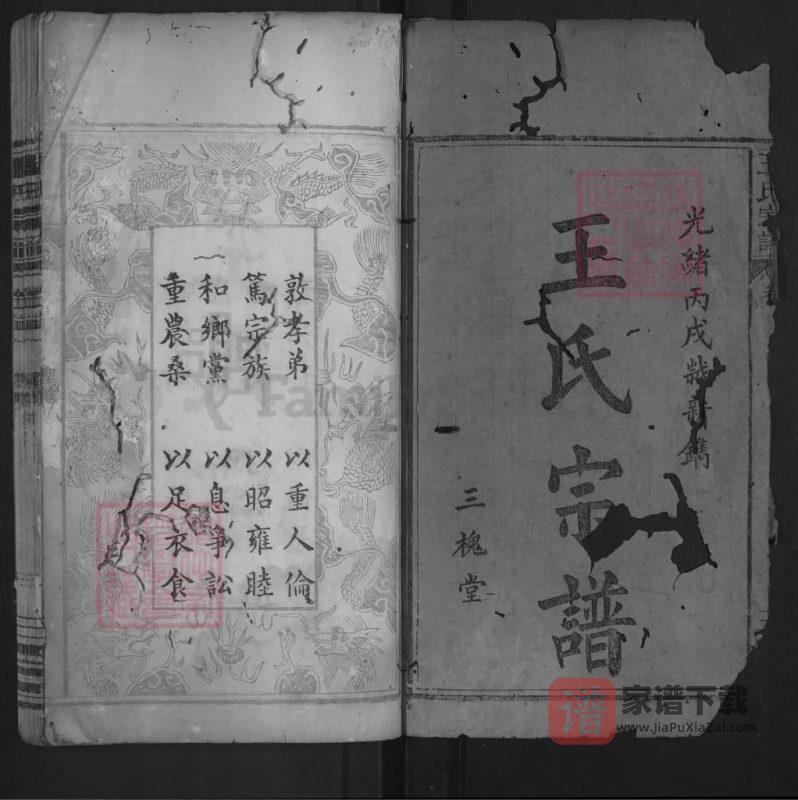 光緒丙戌歲新鐫
王氏宗譜
三槐堂
敦孝弟 以重人倫
篤宗族 以昭雍睦
和鄉黨 以息爭訟
重農桑 以足衣食
王氏宗譜
谱 家谱下载
www.JiaPuXiaZai.com